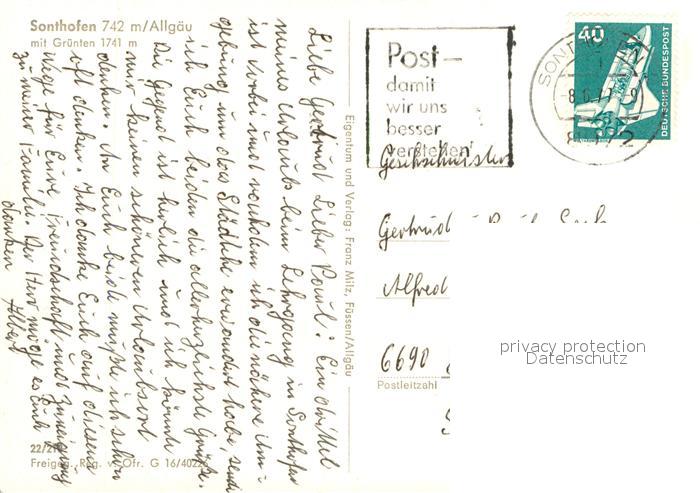 Sonthofen 742 m/Allgäu
mit Grünten 1741 m
Liebe Gertrud! Lieber Paul! Ein drittel
meines Urlaubs beim Lehrgang in Sonthofen
ist vorbei und nachdem ich die nähere Um-
gebung und das Städtche erwandert habe sende
ich Euch beiden die allerherzlichste Grüße.
Die Gegend ist herrlich und ich könnte
mir keinen schöneren Urlaubsort
denken. An Euch beide mußte ich schon
oft denken. Ich danke Euch auf diesem
Wege für Eure Freundschaft und Zuneigung
zu meiner Familie. Der Herr möge es Euch
danken Albert
22/21
Freigeg. Reg. v. Ofr. G 16/402
Eigentum und Verlag: Franz Milz, Füssen/Allgäu
Post–
damit
wir uns
besser
verstehen!
SONTHO
-8.6.77-9
40
DEUTSCHE BUNDESPOST
Geschwister
Gertrud
Alfred
6690
Postleitzahl
privacy protection
Datenschutz